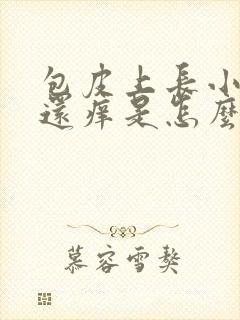 包皮上長小
還痒是怎麼
慕容雪獒